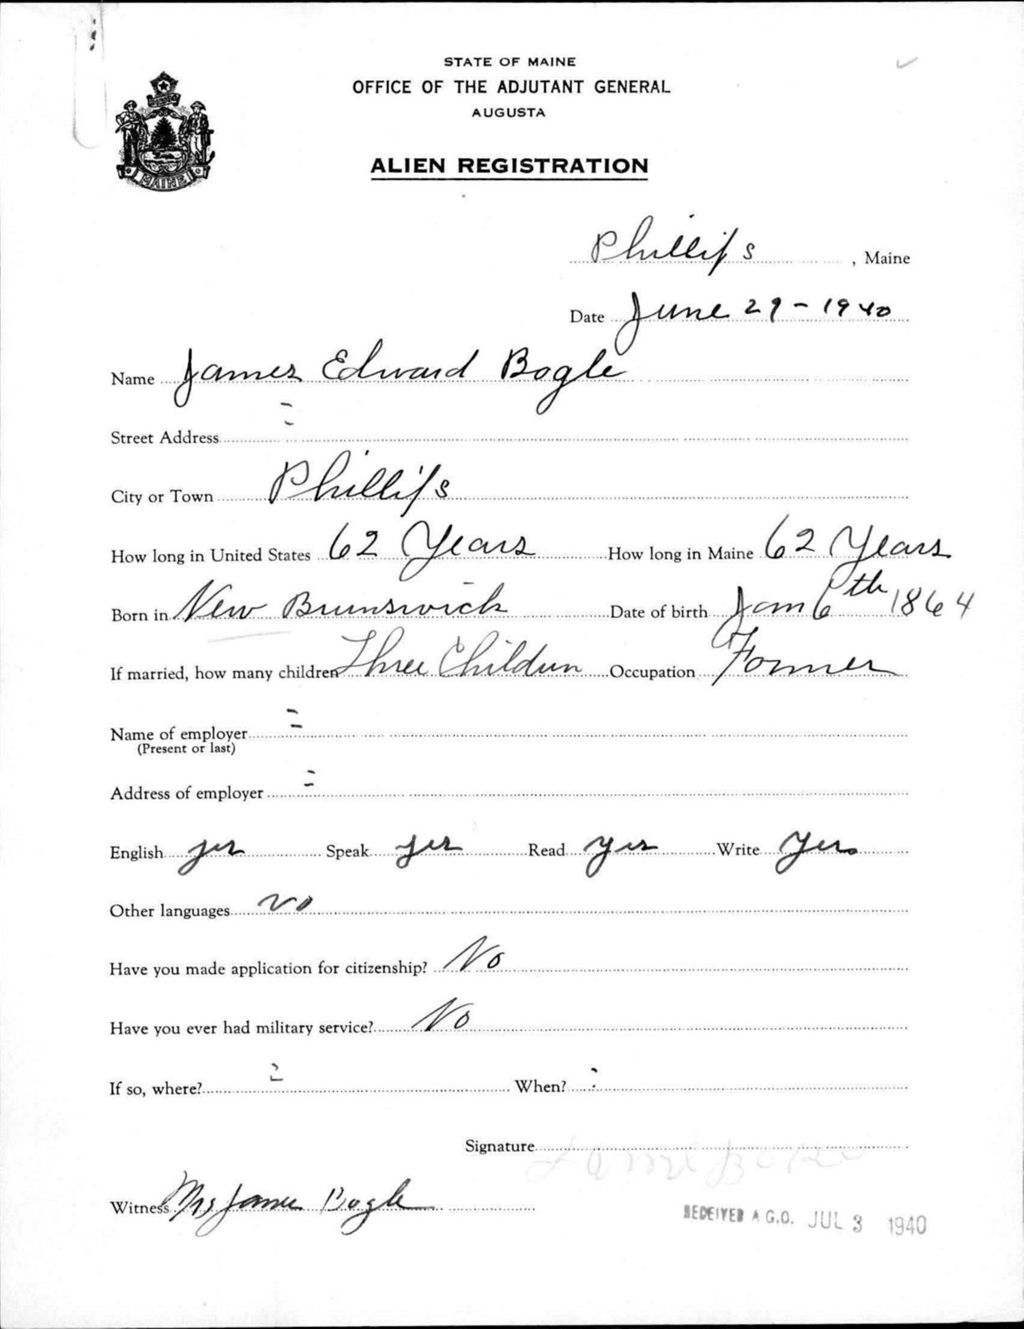 STATE OF MAINE
OFFICE OF THE ADJUTANT GENERAL
AUGUSTA
ALIEN REGISTRATION
MAINE
Phillips, Maine
Date June 29-1940
Name James Edward Bogle
Street Address
City or Town Phillips
How long in United States 62 Years How long in Maine 62 Years
Born in New Brunswick Date of birth Jan 6th 1864
If married, how many children Three Children Occupation Farmer
Name of employer
(Present or last)
Address of employer
English yes Speak yes Read yes Write Yes.
Other languages no
Have you made application for citizenship? No
Have you ever had military service? No
If so, where? When?
Signature
Witness Mrs James Bogle
RECEIVED A.G.O. JUL 3 1940